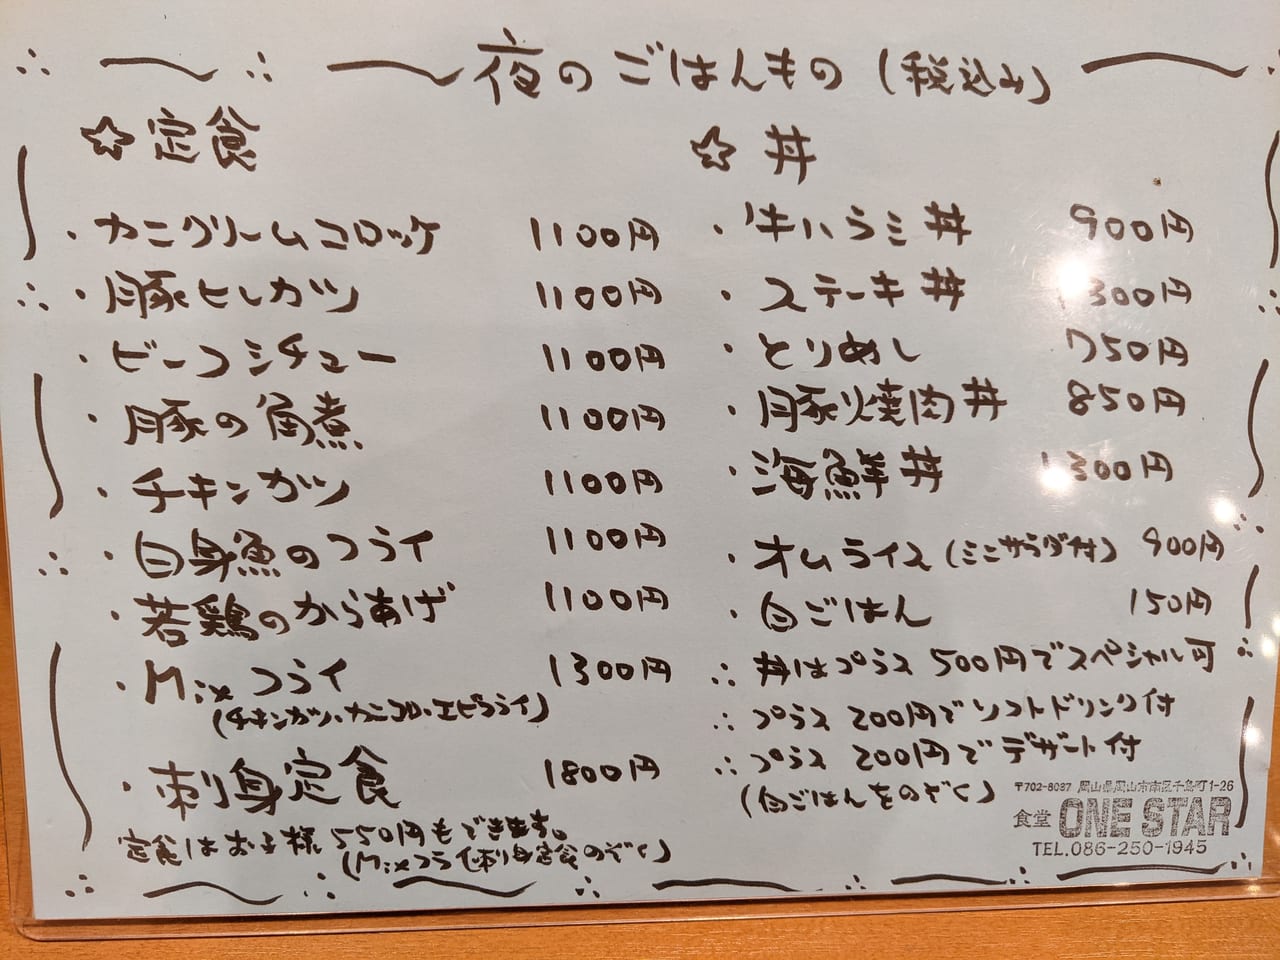 夜のごはんもの (税込み)
☆ 定食
・カニクリームコロッケ 1100円
・豚ヒレカツ 1100円
・ビーフシチュー 1100円
・豚の角煮 1100円
・チキンカツ 1100円
・白身魚のフライ 1100円
・若鶏のからあげ 1100円
・Mixフライ 1300円
(チキンカツ・カニコロ・エビフライ)
・刺身定食 1800円
定食はお子様550円もできます。
(Mixフライ刺身定食のぞく)
☆ 丼
・牛ハラミ丼 900円
・ステーキ丼 1300円
・とりめし 750円
・豚焼肉丼 850円
・海鮮丼 1300円
・オムライス (ミニサラダ付) 900円
・白ごはん 150円
∴ 丼はプラス 500円でスペシャル可
∴ プラス 200円でソフトドリンク付
∴ プラス 200円でデザート付
(白ごはんをのぞく)
〒702-8037 岡山県岡山市南区千鳥町1-26
食堂 ONE STAR
TEL.086-250-1945